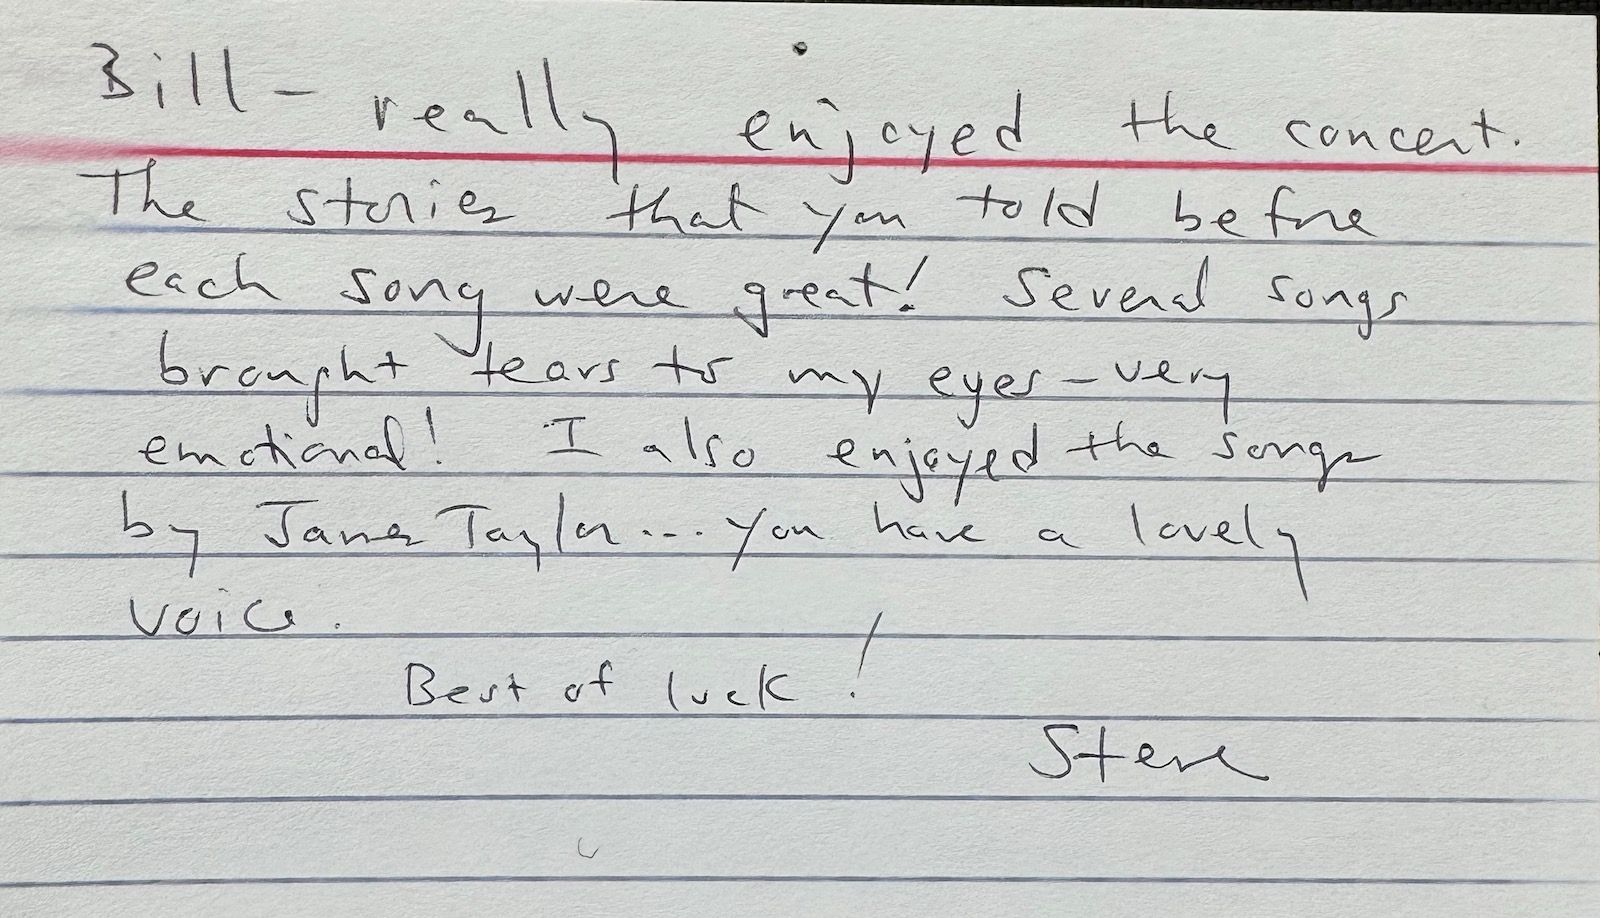 Bill - really enjoyed the concert.
The stories that you told before
each song were great! Several songs
brought tears to my eyes - very
emotional! I also enjoyed the songs
by James Taylor... you have a lovely
voice.
Best of luck!
Steve